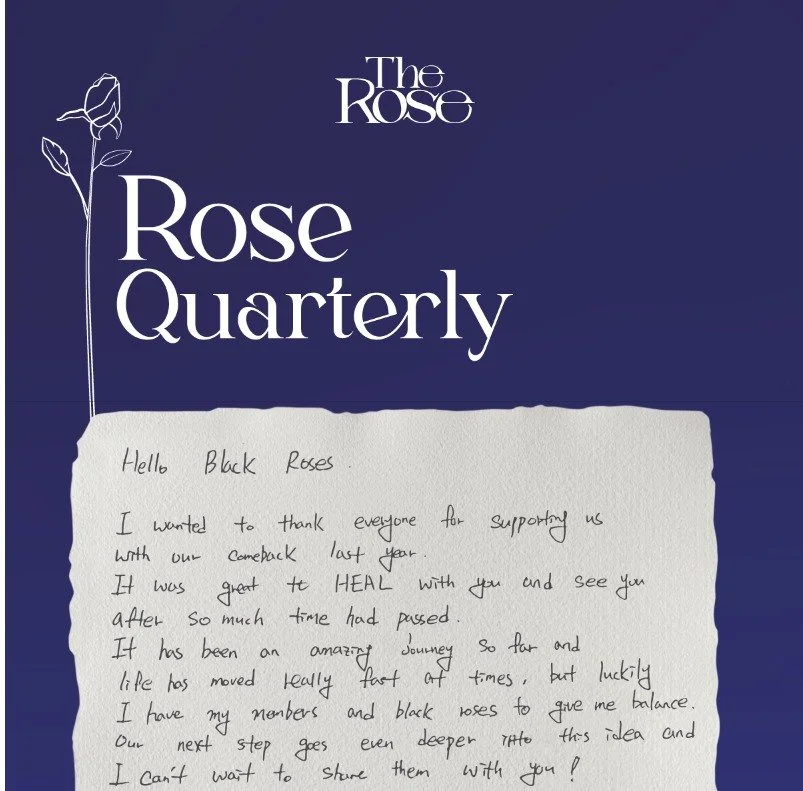 The
Rose
Rose
Quarterly
Hello Black Roses.
I wanted to thank everyone for supporting us
with our comeback last year.
It was great to HEAL with you and see you
after so much time had passed.
It has been an amazing journey so far and
life has moved really fast at times, but luckily
I have my members and black roses to give me balance.
Our next step goes even deeper into this idea and
I can't wait to share them with you!